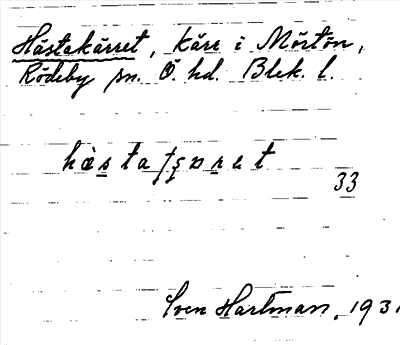 Hästakärret, kärr i Mörtön,
Rödeby sn. Ö. hd. Blek. l.
33
Sven Hartman, 1931